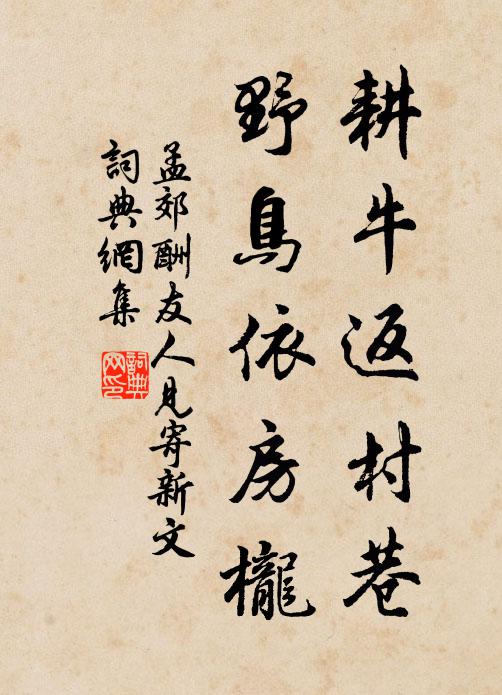 耕牛返村巷
野鳥依房櫳
孟郊酬友人見寄新文
詞典網集
詞典网印